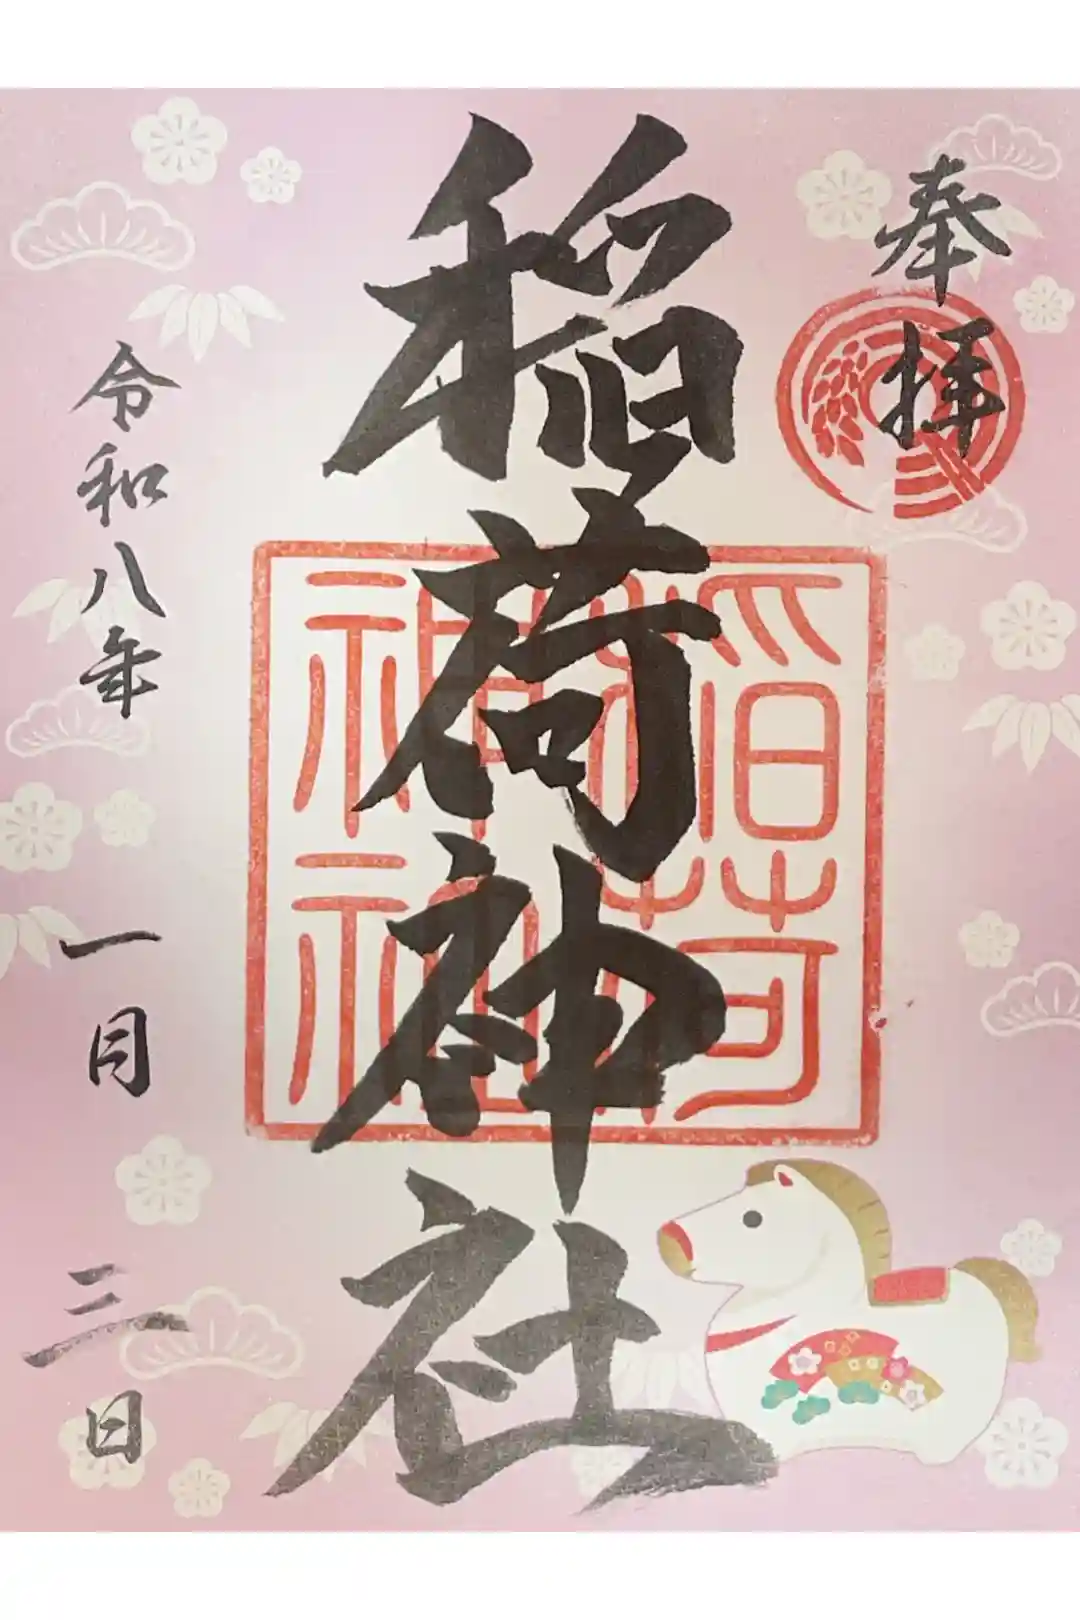 奉拝
稲荷神社
稲荷神社
令和八年 一月 三日